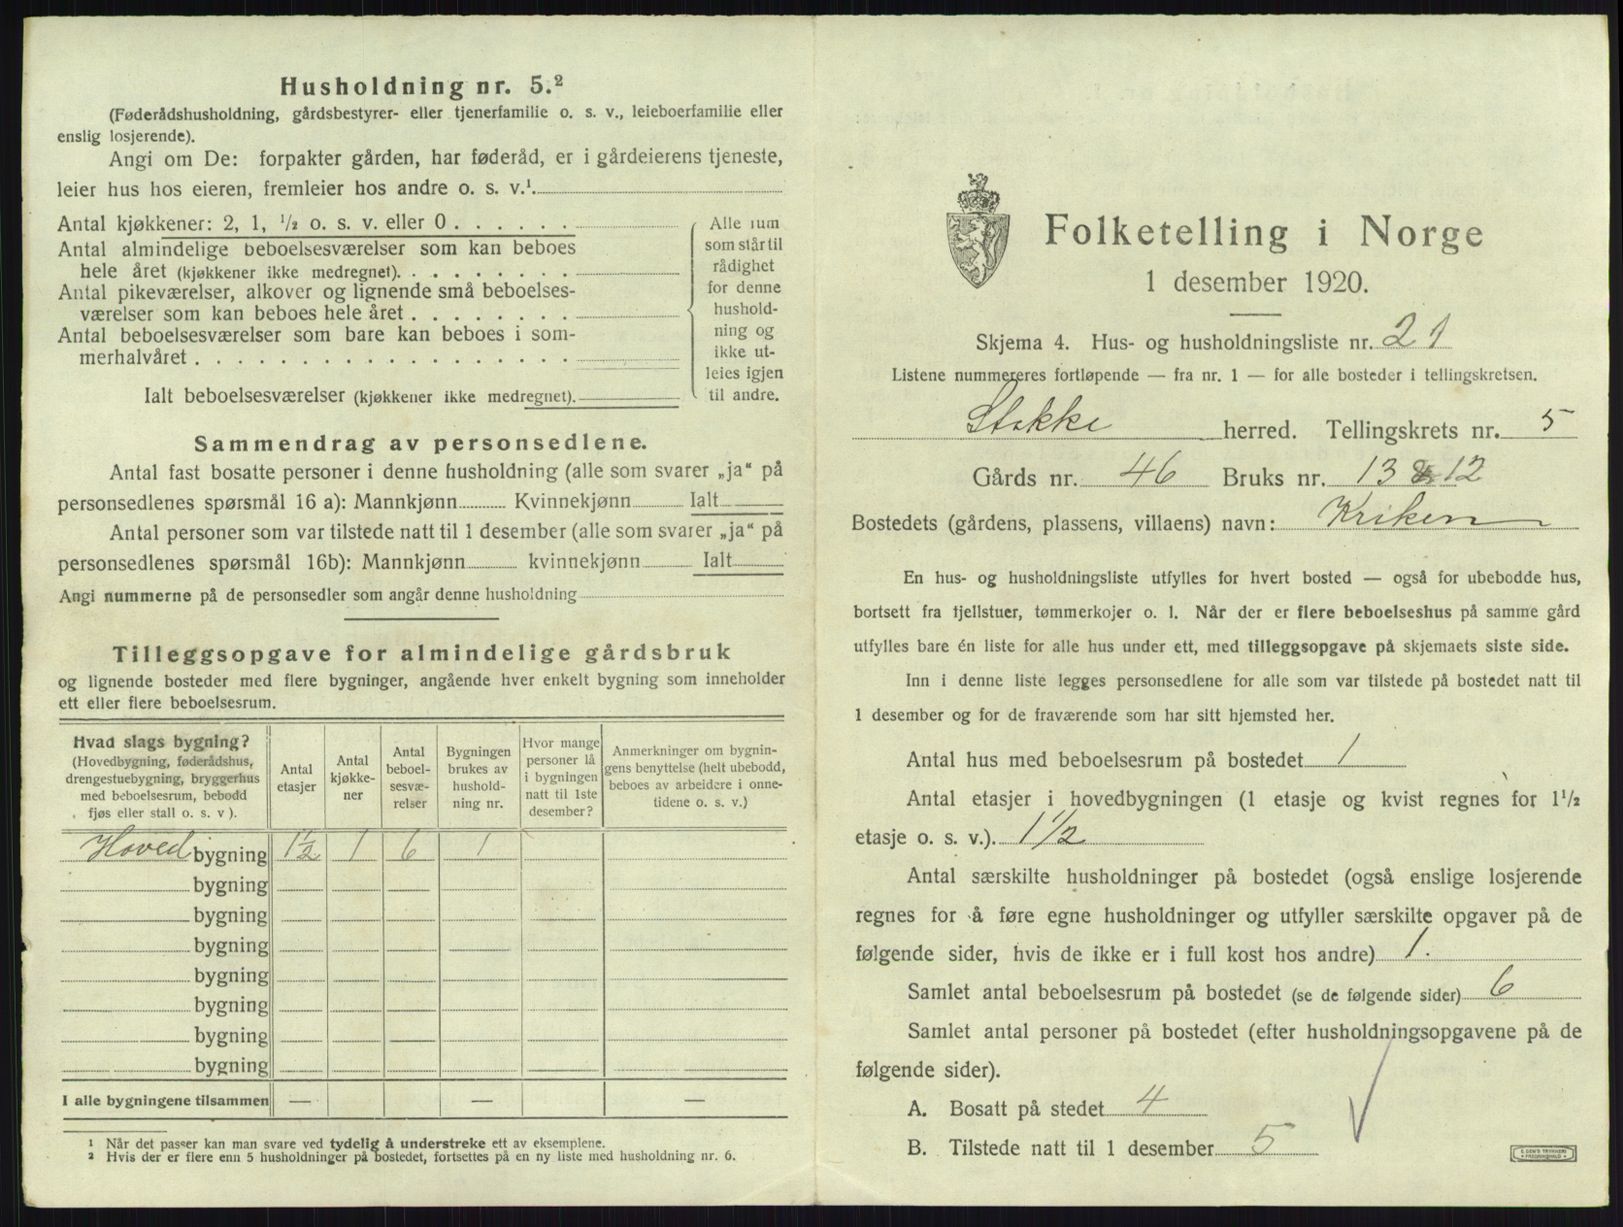 Husholdning nr. 5.²
(Føderådshusholdning, gårdsbestyrer- eller tjenerfamilie o. s. v., leieboerfamilie eller
enslig losjerende).
Angi om De: forpakter gården, har føderåd, er i gårdeierens tjeneste,
leier hus hos eieren, fremleier hos andre o. s. v.¹.
Antal kjøkkener: 2, 1, ½ o. s. v. eller 0 . . . . . .
Antal almindelige beboelsesværelser som kan beboes
hele året (kjøkkener ikke medregnet). . . . . . . . .
Antal pikeværelser, alkover og lignende små beboelses-
værelser som kan beboes hele året . . . . . . . .
Antal beboelsesværelser som bare kan beboes i som-
merhalvåret . . . . . . . . . . . . . . . . . .
Ialt beboelsesværelser (kjøkkener ikke medregnet).
Alle rum
som står til
rådighet
for denne
hushold-
ning og
ikke ut-
leies igjen
til andre.
Sammendrag av personsedlene.
Antal fast bosatte personer i denne husholdning (alle som svarer „ja“ på
personsedlenes spørsmål 16 a): Mannkjønn Kvinnekjønn Ialt
Antal personer som var tilstede natt til 1 desember (alle som svarer „ja“ på
personsedlenes spørsmål 16b): Mannkjønn kvinnekjønn Ialt
Angi nummerne på de personsedler som angår denne husholdning
Tilleggsopgave for almindelige gårdsbruk
og lignende bosteder med flere bygninger, angående hver enkelt bygning som inneholder
ett eller flere beboelsesrum.
Hvad slags bygning?
(Hovedbygning, føderådshus,
drengestuebygning, bryggerhus
med beboelsesrum, bebodd
fjøs eller stall o. s. v ).
Antal
etasjer
Antal
kjøkke-
ner
Antal
beboel-
sesvæ-
relser
Bygningen
brukes av
hushold-
ning nr.
Hvor mange
personer lå
i bygningen
natt til 1ste
desember?
Anmerkninger om bygnin-
gens benyttelse (helt ubebodd,
beboes av arbeidere i onne-
tidene o. s. v.)
Hoved bygning 1½ 1 6 1
bygning
bygning
bygning
bygning
bygning
bygning
bygning
I alle bygningene tilsammen — — —
¹ Når det passer kan man svare ved tydelig å understreke ett av eksemplene.
² Hvis der er flere enn 5 husholdninger på bostedet, fortsettes på en ny liste med husholdning nr. 6.
Folketelling i Norge
1 desember 1920.
Skjema 4. Hus- og husholdningsliste nr. 21
Listene nummereres fortløpende — fra nr. 1 — for alle bosteder i tellingskretsen.
Stokke herred. Tellingskrets nr. 5
Gårds nr. 46 Bruks nr. 13 & 12
Bostedets (gårdens, plassens, villaens) navn: Kriken
En hus- og husholdningsliste utfylles for hvert bosted — også for ubebodde hus,
bortsett fra fjellstuer, tømmerkojer o. l. Når der er flere beboelseshus på samme gård
utfylles bare én liste for alle hus under ett, med tilleggsopgave på skjemaets siste side.
Inn i denne liste legges personsedlene for alle som var tilstede på bostedet natt til
1 desember og for de fraværende som har sitt hjemsted her.
Antal hus med beboelsesrum på bostedet 1
Antal etasjer i hovedbygningen (1 etasje og kvist regnes for 1½
etasje o. s. v.). 1½
Antal særskilte husholdninger på bostedet (også enslige losjerende
regnes for å føre egne husholdninger og utfyller særskilte opgaver på de
følgende sider, hvis de ikke er i full kost hos andre) 1.
Samlet antal beboelsesrum på bostedet (se de følgende sider) 6
Samlet antal personer på bostedet (efter husholdningsopgavene på de
følgende sider).
A. Bosatt på stedet 4
B. Tilstede natt til 1 desember 5